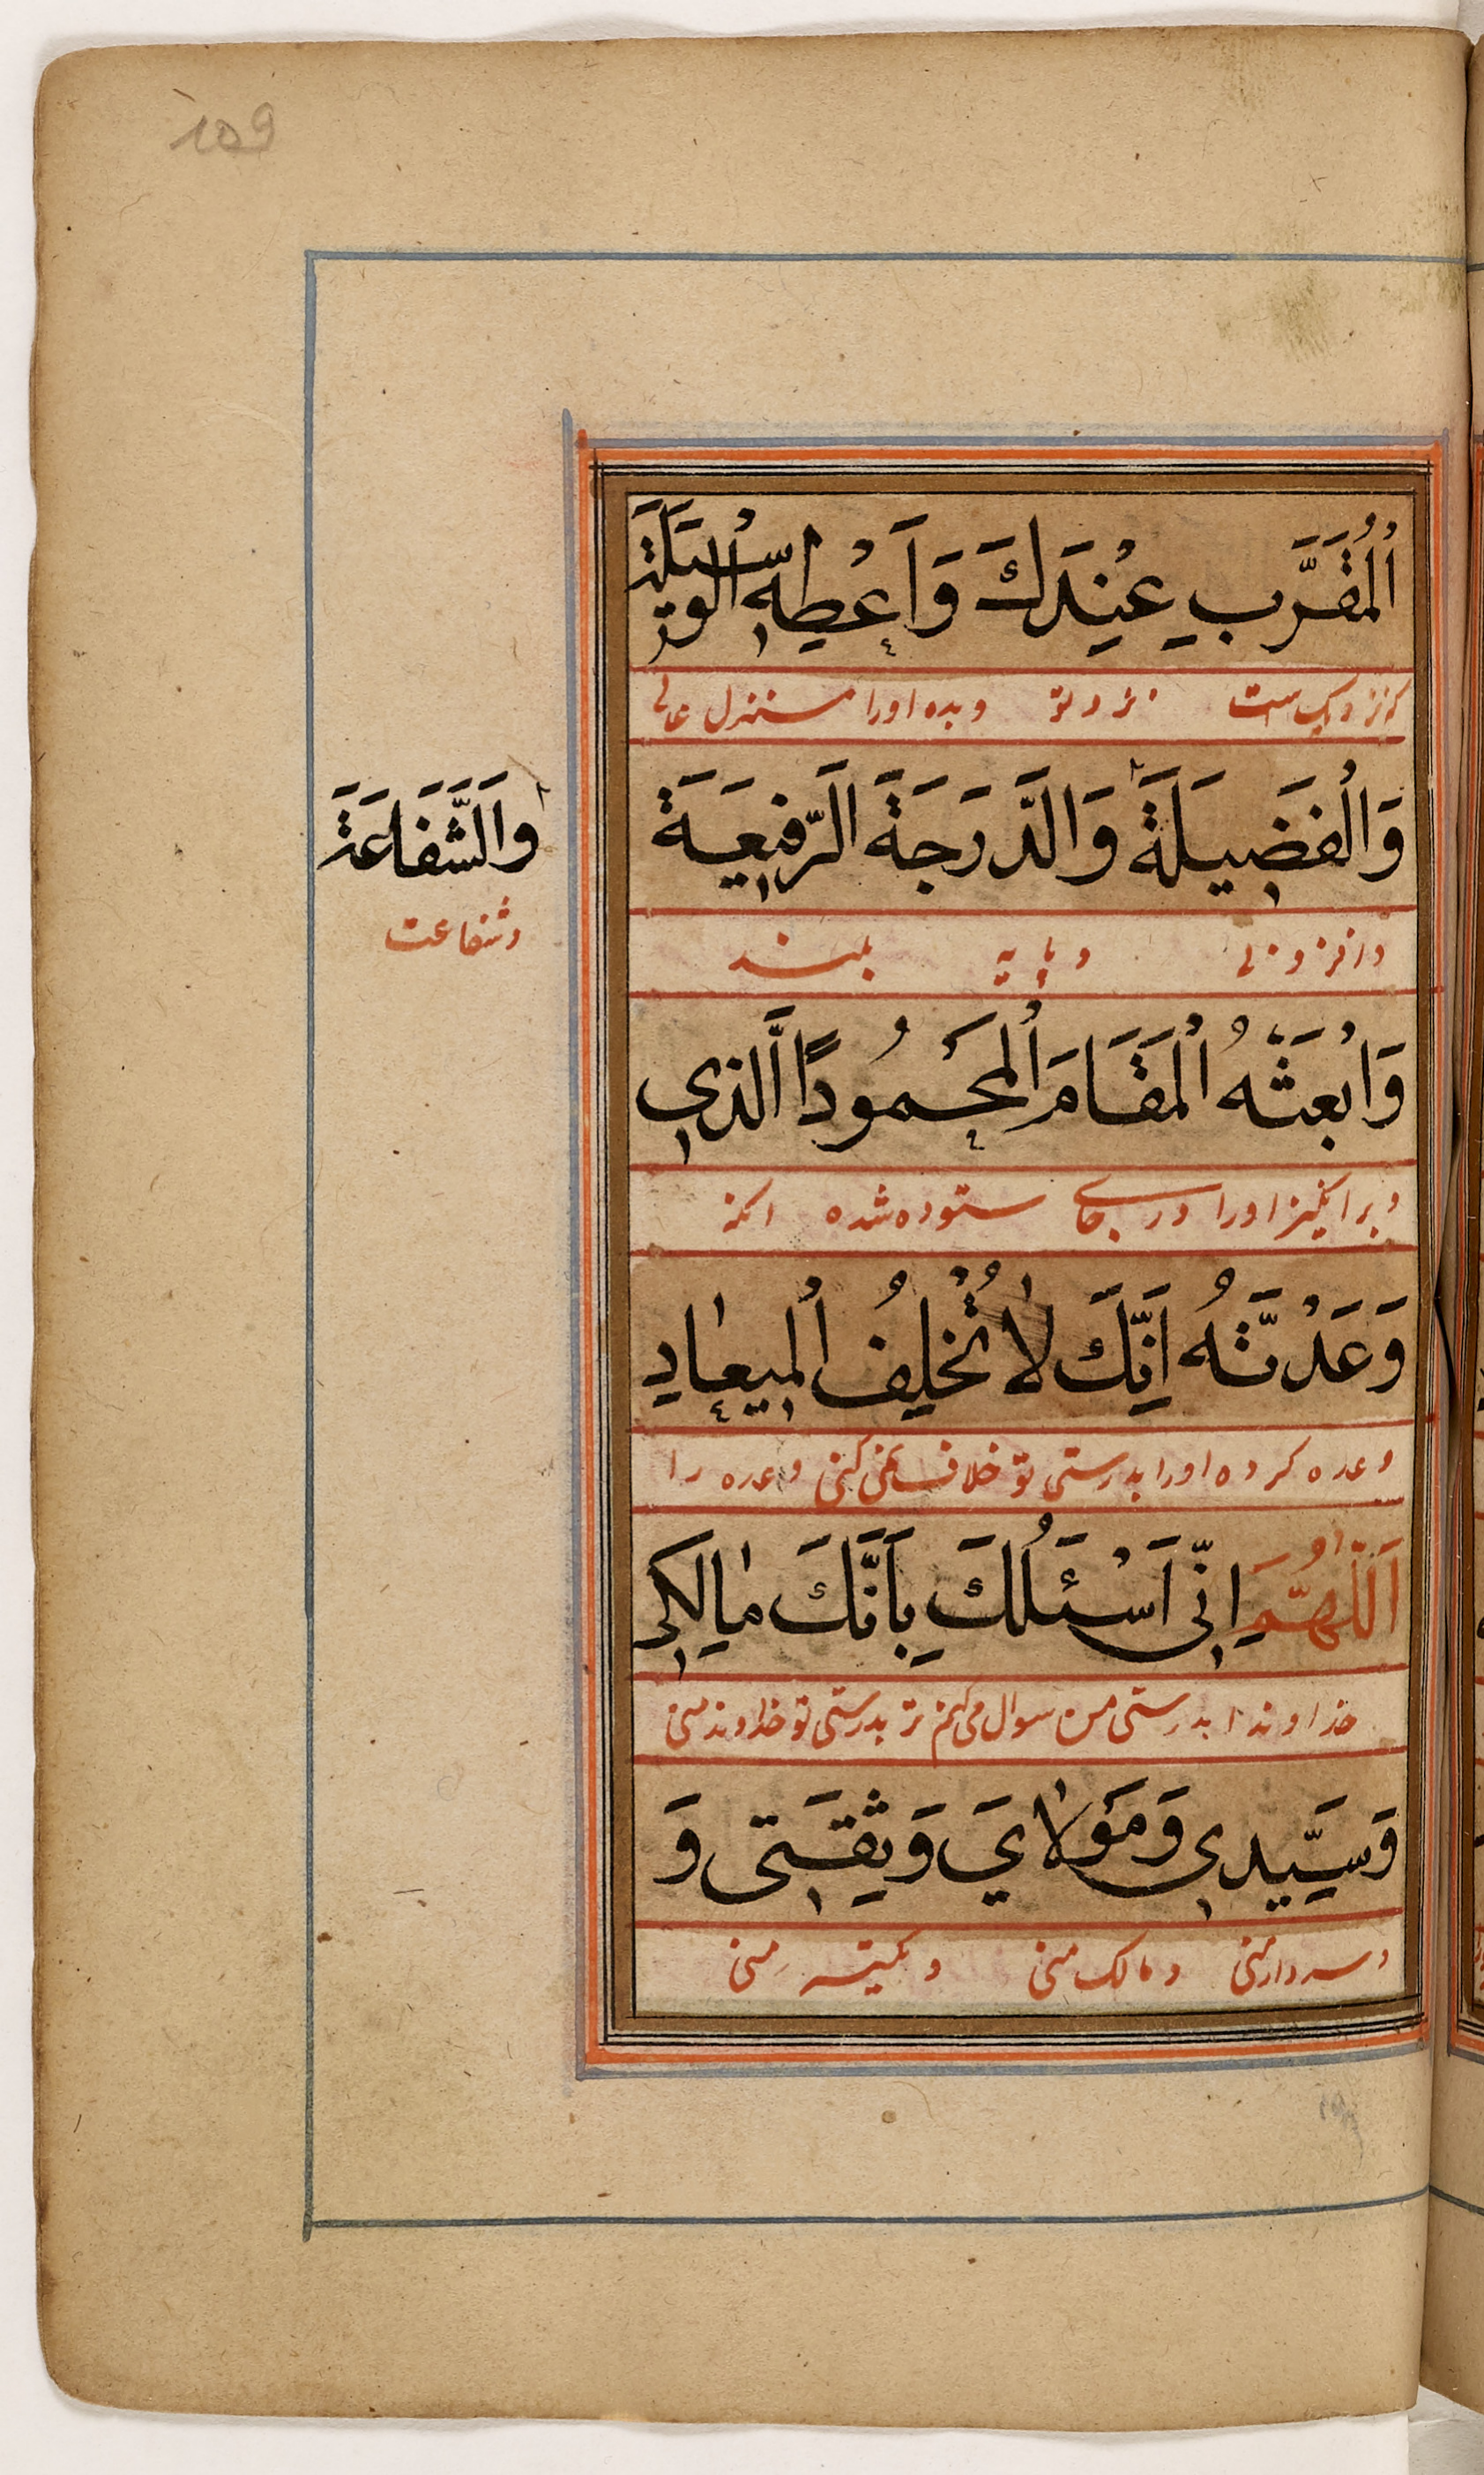 109
اَلْمُقَرَّبِ عِنْدَكَ وَاَعْطِهِ الْوَسِيلَةَ
که نزدیک است نزد تو و بده او را منزل عالی
وَالْفَضِيلَةَ وَالدَّرَجَةَ الرَّفِيعَةَ
وافزونی و پایه بلند
وَالشَّفَاعَةَ
وشفاعت
وَابْعَثْهُ الْمَقَامَ الْمَحْمُودًا الَّذِي
و برانگیز او را در جای ستوده شده انکه
وَعَدْتَهُ اِنَّكَ لَا تُخْلِفُ الْمِيعَادِ
وعده کرده او را بدرستی تو خلاف نمی کنی وعده را
اَللّٰهُمَّ اِنِّى اَسْئَلُكَ بِاَنَّكَ مَالِكِى
خداوندا بدرستی من سوال می کنم تر بدرستی تو خداوند منی
وَسَيِّدِي وَمَوْلَايَ وَثِقَتِى وَ
و سردار منی و مالک منی و تکیه منی